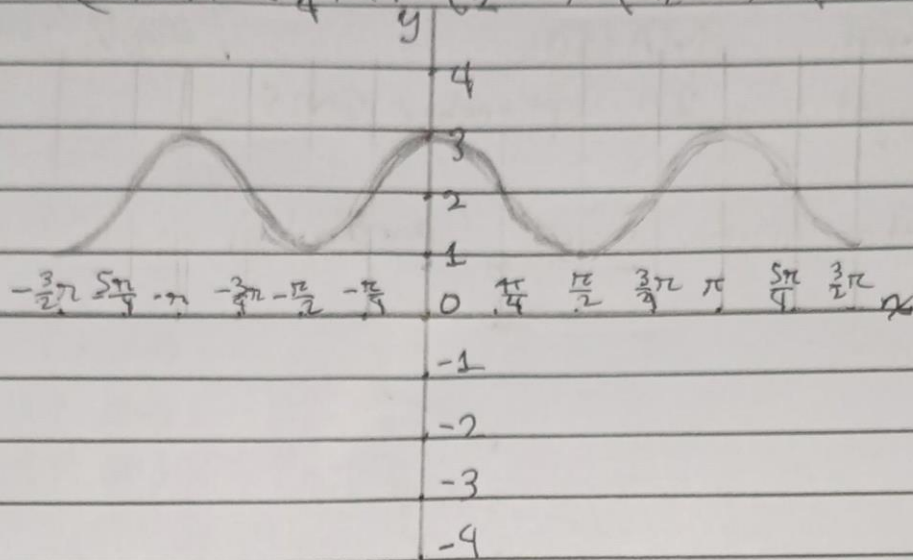 y
4
3
2
1
-3/2 π 5π/4 -π -3/4 π -π/2 -π/4 0 π/4 π/2 3/4 π π 5π/4 3/2 π x
-1
-2
-3
-4